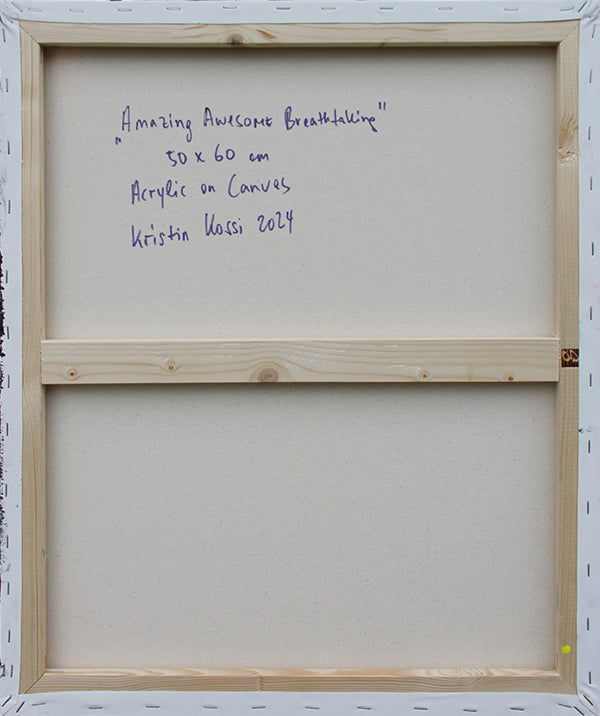 „Amazing Awesome Breathtaking"
50 x 60 cm
Acrylic on Canvas
Kristin Kossi 2024